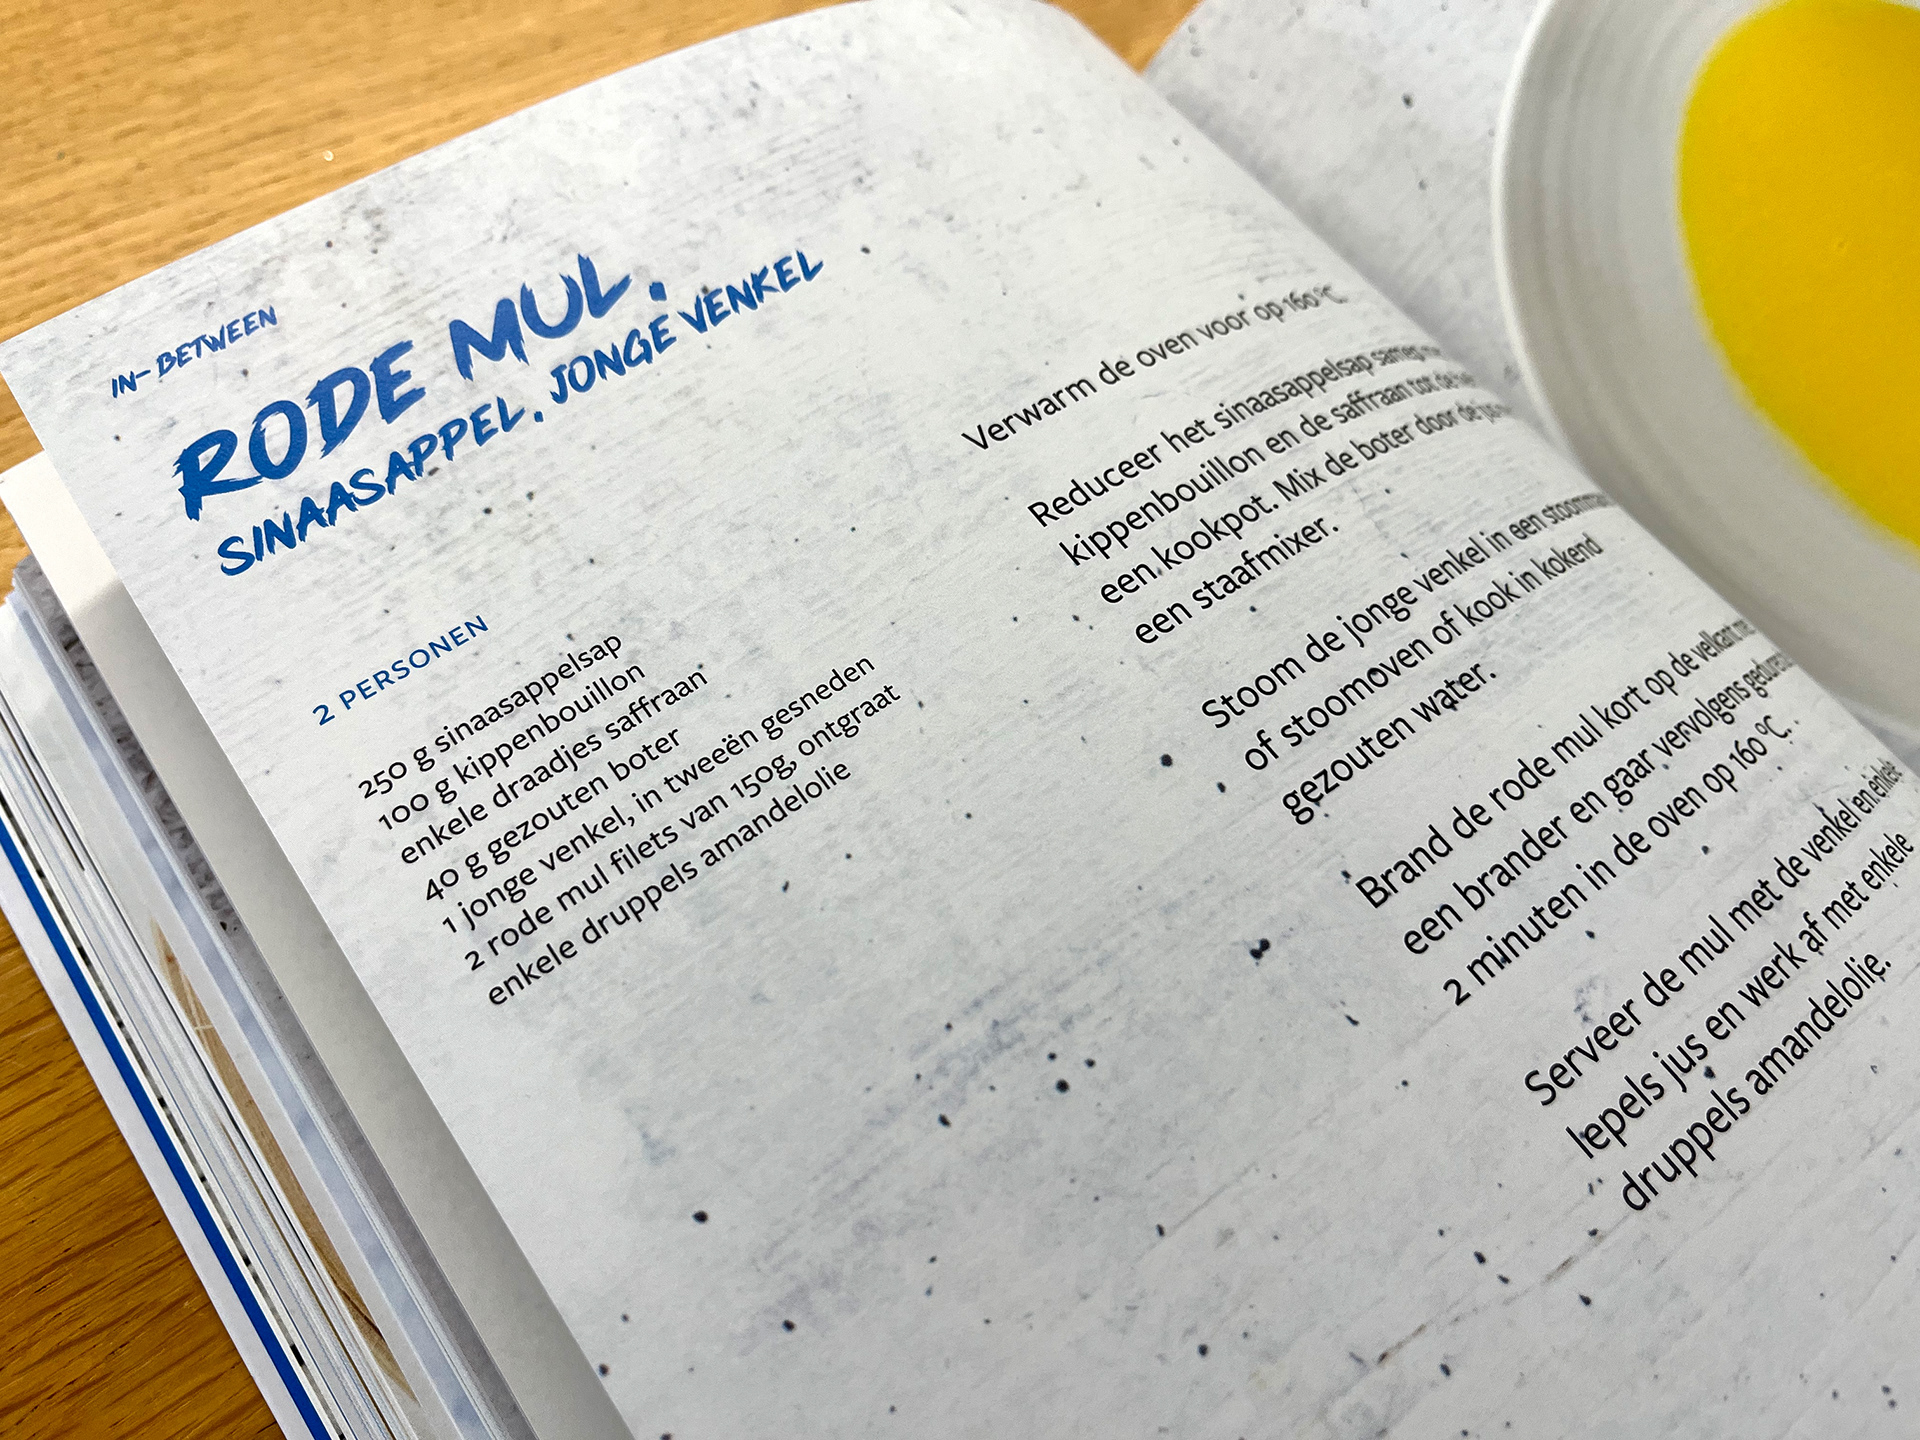 IN-BETWEEN
RODE MUL.
SINAASAPPEL. JONGE VENKEL
2 PERSONEN
250 g sinaasappelsap
100 g kippenbouillon
enkele draadjes saffraan
40 g gezouten boter
1 jonge venkel, in tweeën gesneden
2 rode mul filets van 150g, ontgraat
enkele druppels amandelolie
Verwarm de oven voor op 160 °C.
Reduceer het sinaasappelsap samen
kippenbouillon en de saffraan tot de
een kookpot. Mix de boter door de jus
een staafmixer.
Stoom de jonge venkel in een
of stoomoven of kook in kokend
gezouten water.
Brand de rode mul kort op de velkant
een brander en gaar vervolgens gedurende
2 minuten in de oven op 160 °C.
Serveer de mul met de venkel en enkele
lepels jus en werk af met enkele
druppels amandelolie.